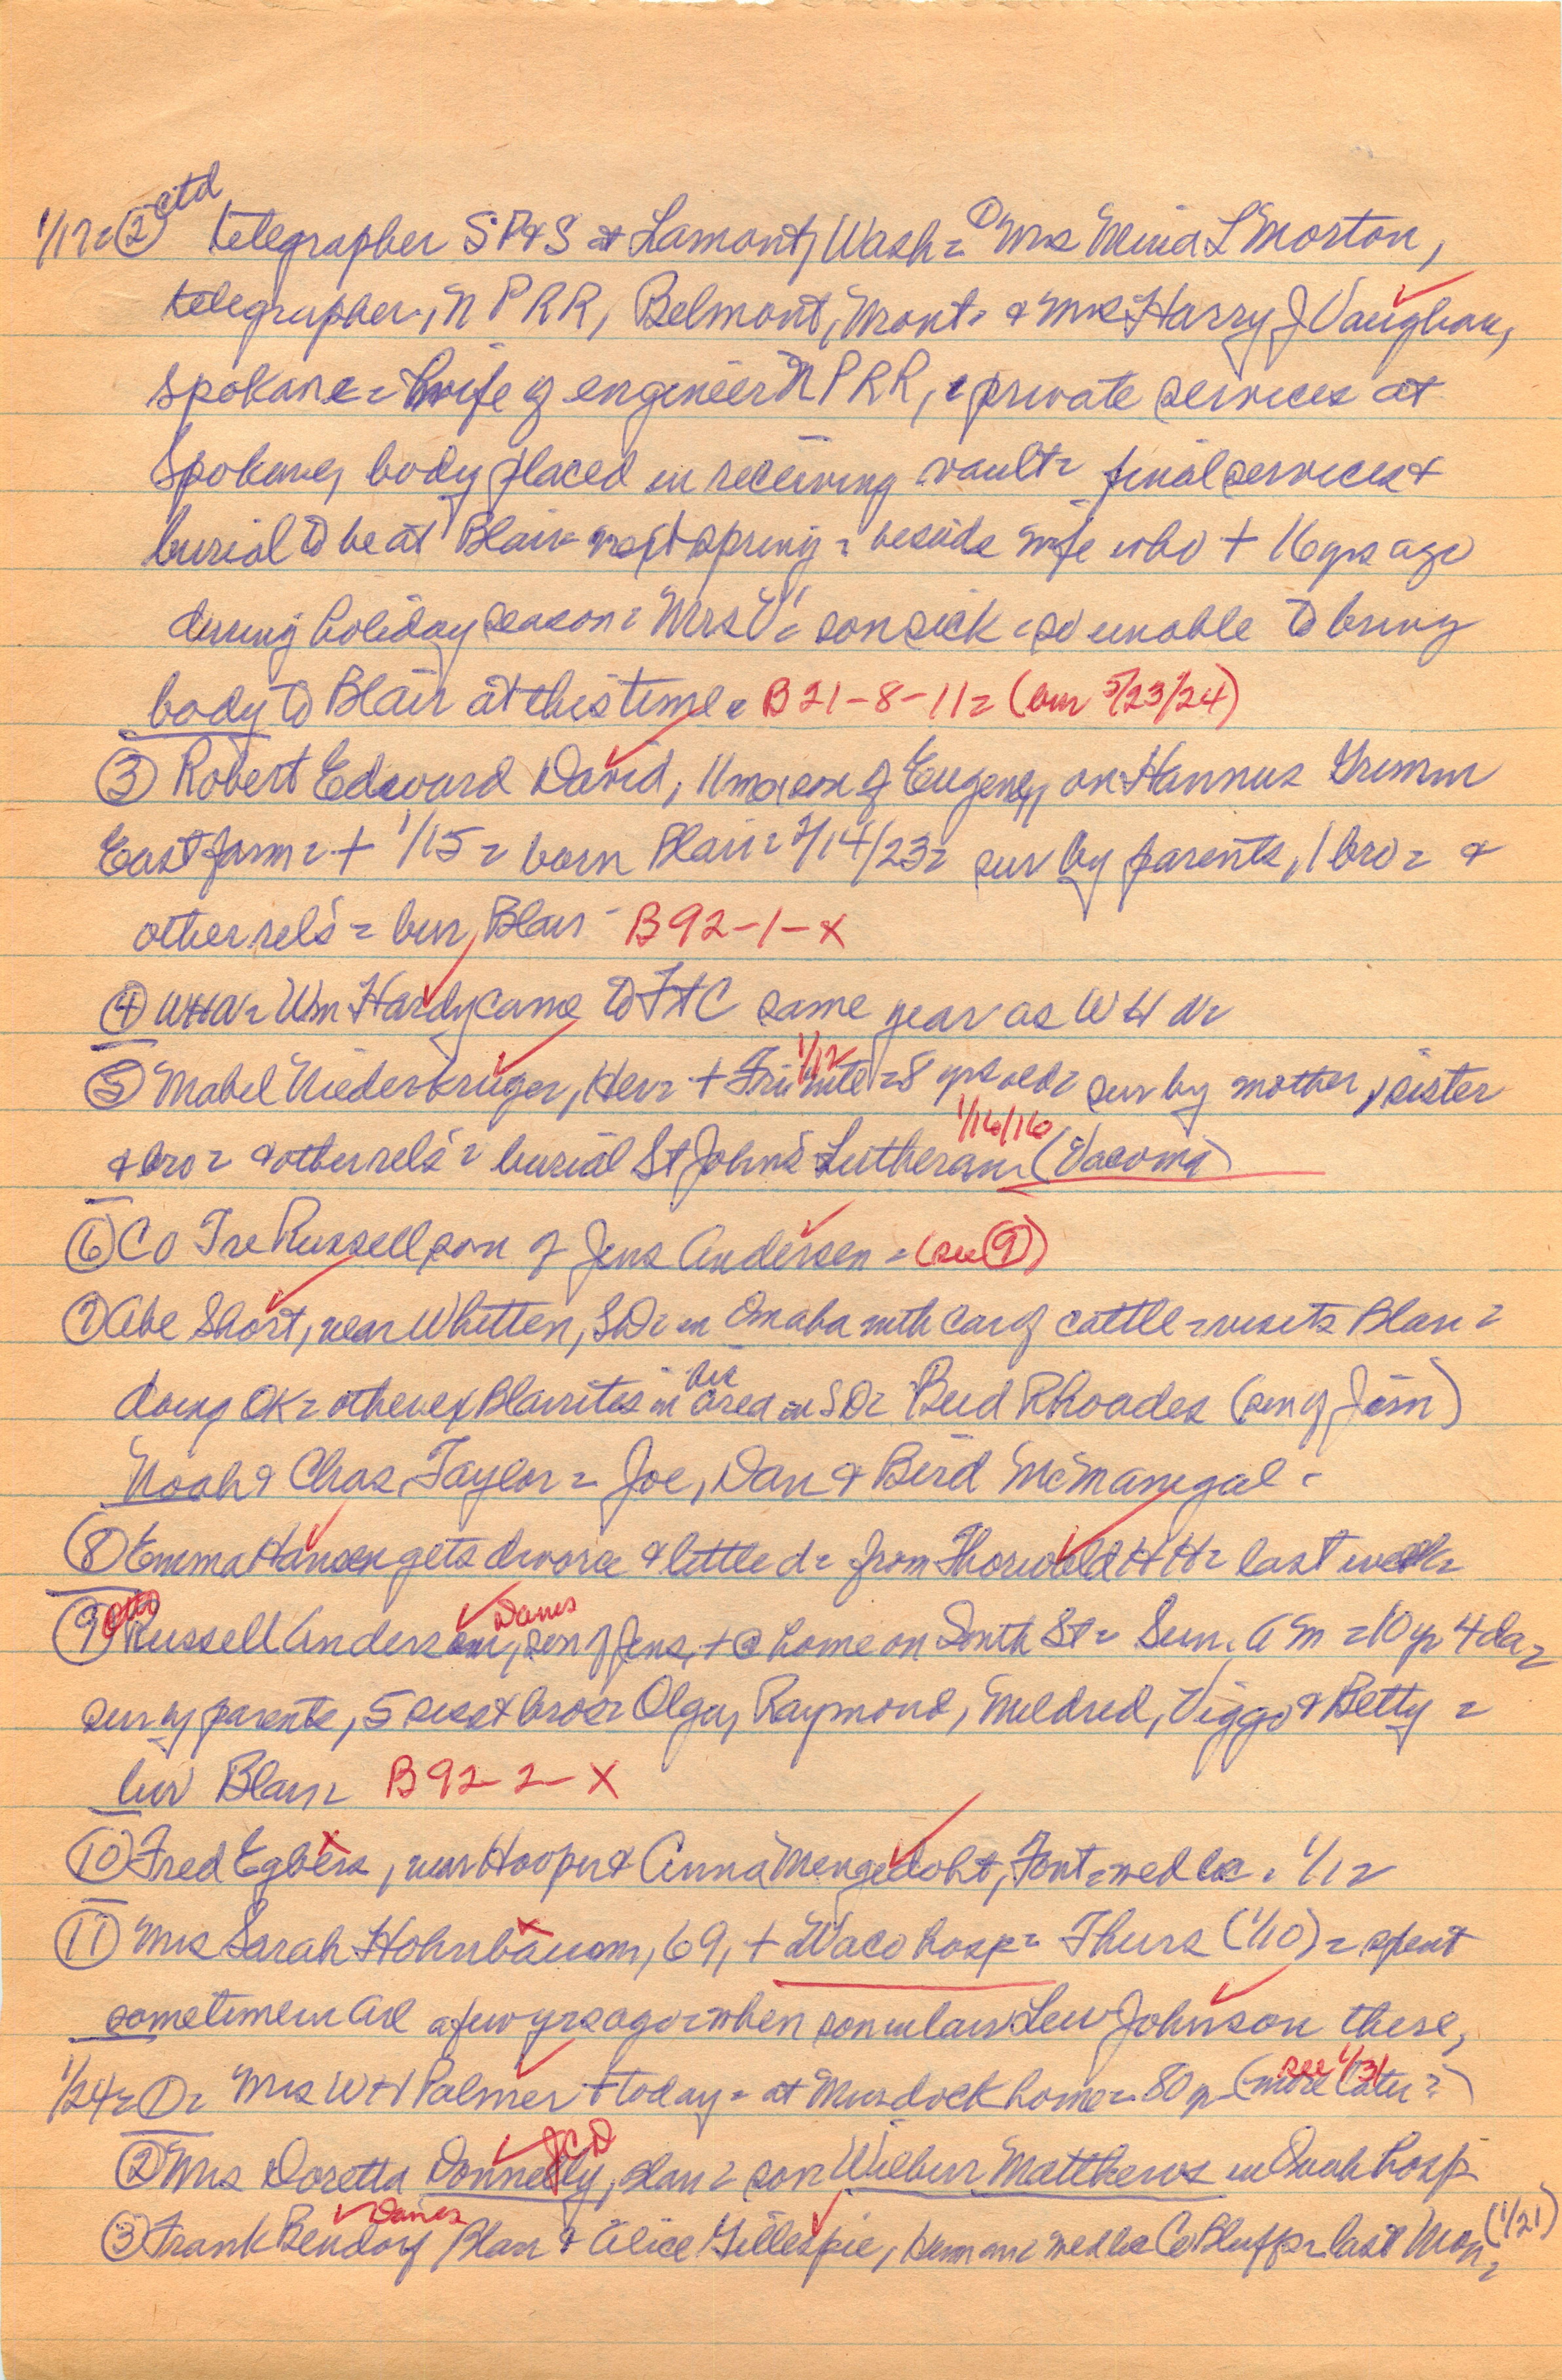 1/17= ② ctd telegrapher SP&S at Lamont, Wash= ① Mrs Mina L Morton,
telegrapher, NPRR, Belmont, Mont= & Mrs Harry J Vaughan,
Spokane= wife of engineer NPRR, = private services at
Spokane, body placed in receiving vault= final services &
burial to be at Blair next spring= beside wife who + 16 yrs ago
during holiday season= Mrs V's son sick = so unable to bring
body to Blair at this time= B 21-8-11= (bur 5/23/24)
③ Robert Edward David, 11 mo, son of Eugene, on Hannus Grimm
East farm= + 1/15= born Blair= 2/14/23= sur by parents, 1 bro= &
other rels= bur, Blair - B 92-1-X
④ WHW= Wm Hardy came to FtC same year as WHW=
⑤ Mabel Niederkruger, Her= + Fri nite 1/12 = 8 yrs old= sur by mother, sister
& bro= & other rels= burial St John's Lutheran= 1/16/16 (Vacoma)
⑥ Co Tre Russell son of Jens Andersen = (see ⑨)
⑦ Abe Short, near Whitten, SD= in Omaha with car of cattle= visits Blair=
doing OK= other ex Blairites in his area in SD= Bud Rhoades (son of Jim)
Noah & Chas Taylor= Joe, Dan & Bird McManigal=
⑧ Emma Hansen gets divorce & little d= from Thorwald HH= last week=
⑨ Otto Russell Andersen, Danes son of Jens, + @ home on South St= Sun. AM= 10 yr 4 da=
sur by parents, 5 sis & bros= Olga, Raymond, Mildred, Viggo & Betty=
bur Blair= B 92-2-X
⑩ Fred Egbers, near Hooper & Anna Mengedoht, Font= wed = 1/1=
⑪ Mrs Sarah Hohnbaum, 69, + Waco hosp= Thurs (1/10)= spent
sometime in Arl a few yrs ago= when son in law Lew Johnson there,
1/24= ①= Mrs WH Palmer + today= at Murdock home= 80 yr (more later?) see 1/31
② Mrs Doretta Donnelly, JCD Blair= son Wilbur Matthews in Omah hosp
③ Frank Bendorf Danes Blair & Alice Gillespie, Herman= wed Co Bluffs= last Mon= (1/21)